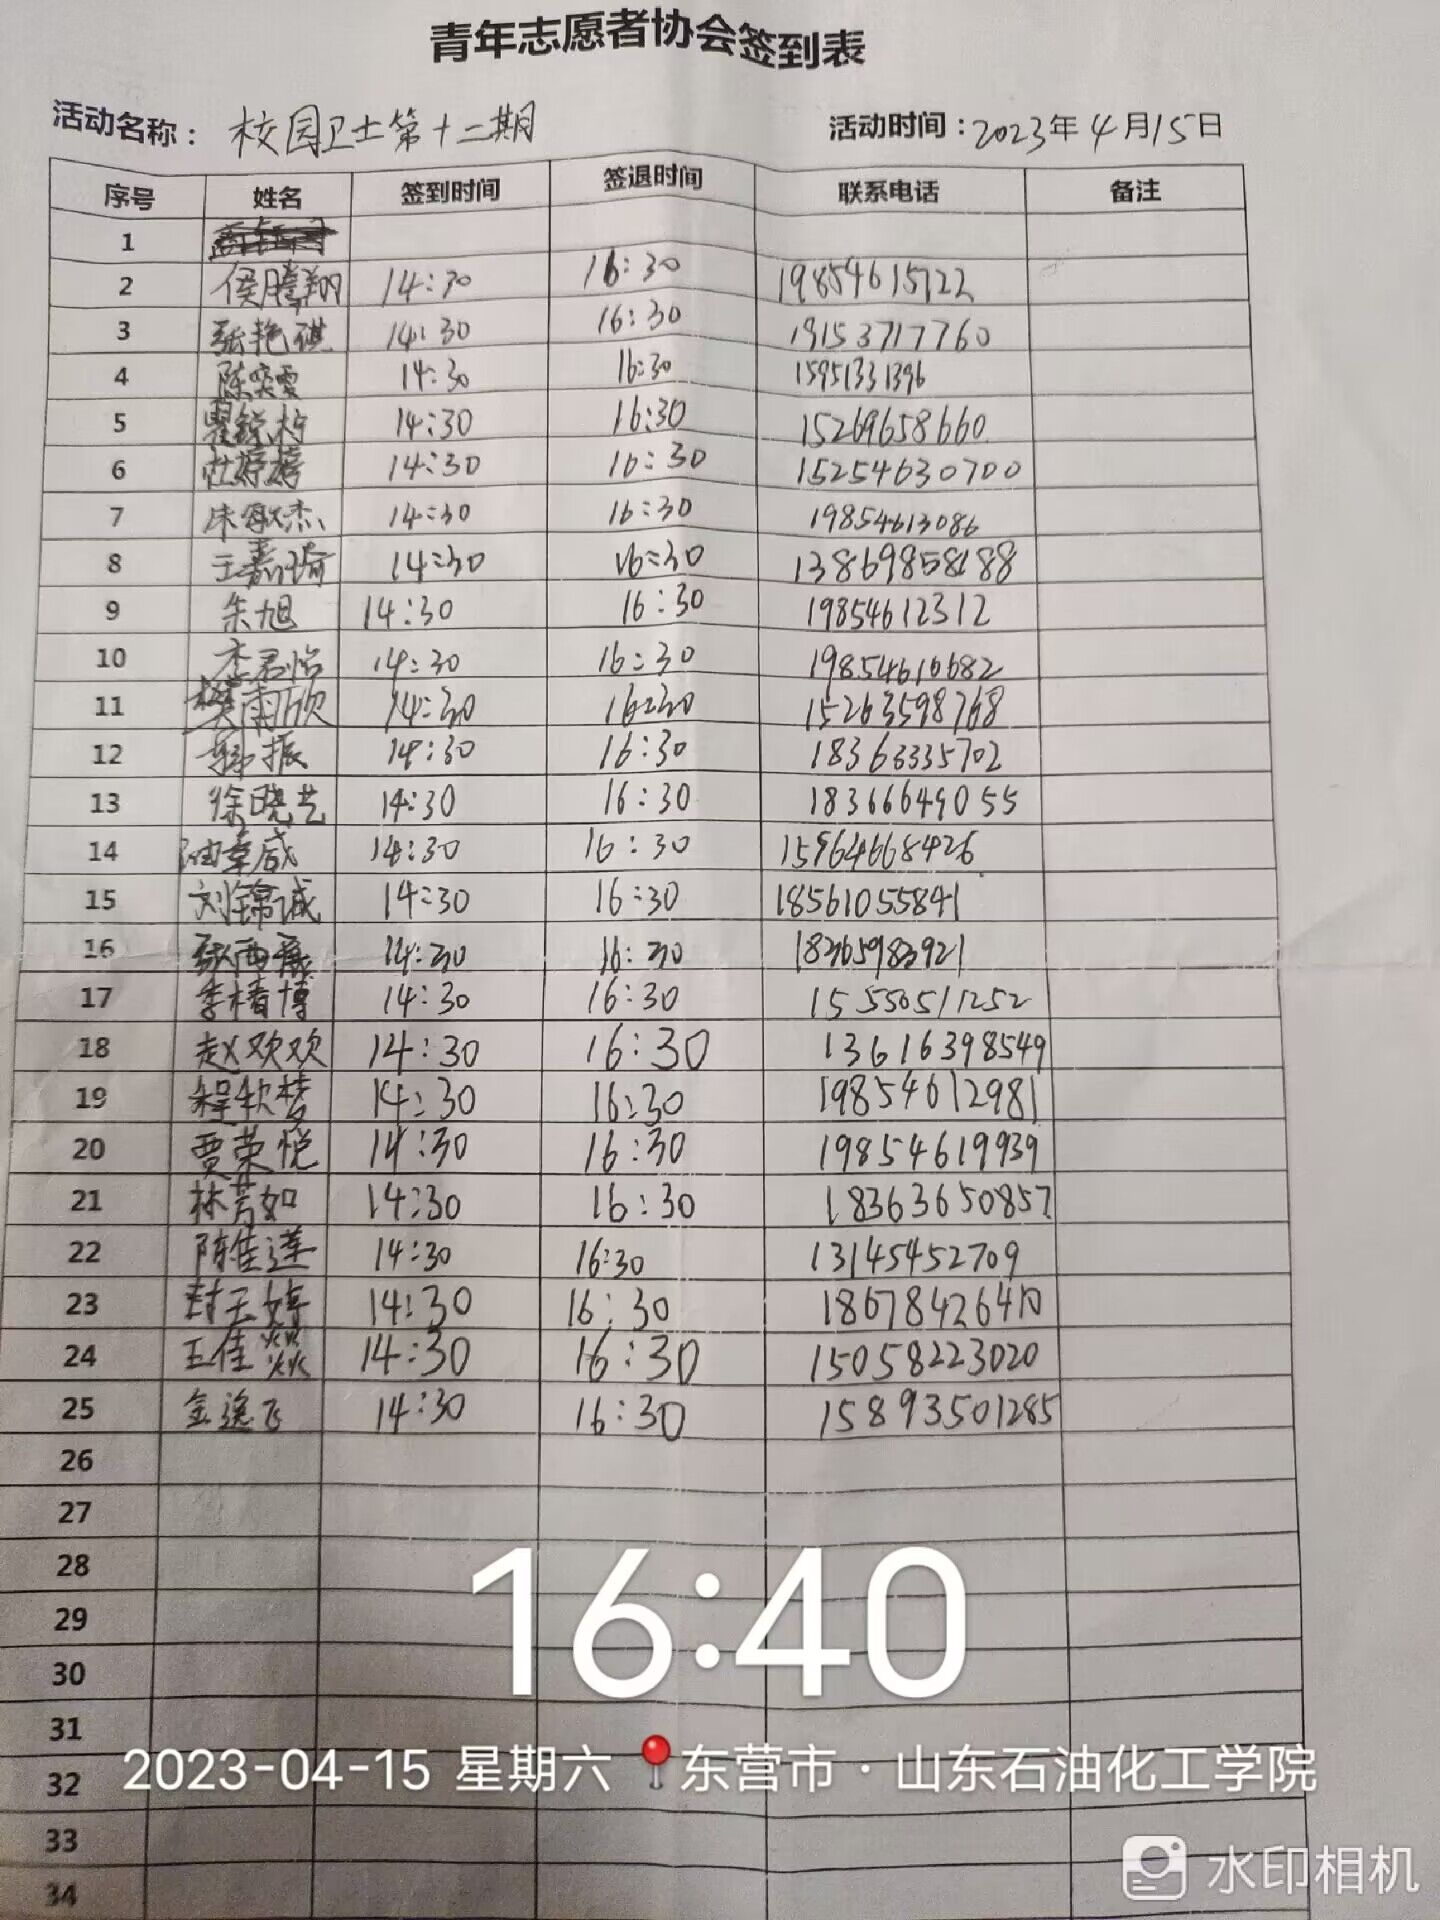 青年志愿者协会签到表
活动名称： 校园卫士第十二期 活动时间：2023年4月15日
序号 姓名 签到时间 签退时间 联系电话 备注
1
2 侯腾翔 14:30 16:30 19854615722
3 张艳祺 14:30 16:30 19153717760
4 陈奕雯 14:30 16:30 15951331396
5 14:30 16:30 15269658660
6 杜婷婷 14:30 16:30 15254630700
7 14:30 16:30 19854613086
8 王嘉琦 14:30 16:30 13869858188
9 朱旭 14:30 16:30 19854612312
10 李君怡 14:30 16:30 19854610682
11 樊雨欣 14:30 16:30 15263598768
12 14:30 16:30 18363335702
13 徐晓艺 14:30 16:30 18366649055
14 14:30 16:30 15964668426
15 刘锦诚 14:30 16:30 18561055841
16 14:30 16:30 18365983921
17 李椿博 14:30 16:30 15550511252
18 赵欢欢 14:30 16:30 13616398549
19 程软梦 14:30 16:30 19854612981
20 贾荣悦 14:30 16:30 19854619939
21 林芳如 14:30 16:30 18363650857
22 陈佳莲 14:30 16:30 13145452709
23 封玉婷 14:30 16:30 18678426410
24 王佳燚 14:30 16:30 15058223020
25 金逸飞 14:30 16:30 15893501285
26
27
28
29
30
31
32
33
34
16:40
2023-04-15 星期六 东营市·山东石油化工学院
水印相机